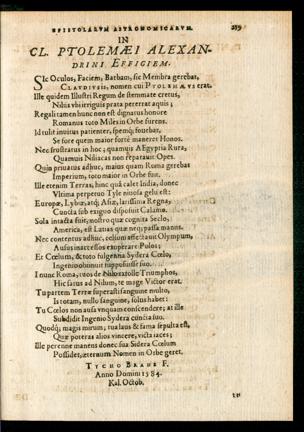 EPISTOLARVM ASTRONOMICARVM. 239
IN
CL. PTOLEMÆI ALEXAN-
DRINI EFFIGIEM.
SIc Oculos, Faciem, Barbam, sic Membra gerebat,
CLAVDIVS, nomen cui PTOLEMÆVS erat.
Ille quidem Illustri Regum de stemmate cretus,
Nilia vbi irriguis prata pererrat aquis;
Regali tamen hunc non est dignatus honore
Romanus toto Miles in Orbe furens.
Id tulit invitus patienter, spemq; fouebat,
Se fore quem maior forte maneret Honos.
Nec frustratus in hoc; quamuis Ægyptia Rura,
Quamuis Niliacas non reparauit Opes.
Quin privatus adhuc, maius quam Roma gerebat
Imperium, toto maior in Orbe fuit.
Ille etenim Terras, hinc quâ calet India, donec
Vltima perpetuo Tyle niuosa gelu est:
Europæ, Lybiæ, atq; Asiæ, latissima Regna,
Cuncta sub exiguo disposuit Calamo.
Sola intacta fuit, nostro quæ cognita Seclo,
America, est Latias quæ neq; passa manus.
Nec contentus adhuc, celsum affectauit Olympum,
Ausus inaccessos exuperare Polos;
Et Cœlum, & toto fulgentia Sydera Cœlo,
Ingenio
I nunc Roma, tuos de Nilo extolle Triumphos,
Hic satus ad Nilum, te mage Victor erat.
Tu partem Terræ superasti sanguine multo,
Is totam, nullo sanguine, solus habet:
Tu Cœlos non ausa vnquam conscendere; at ille
Subdidit Ingenio Sydera cuncta suo.
Quodq; magis mirum; tua laus & fama sepulta est,
Quæ poteras alios vincere, victa iaces;
Ille perenne manens donec sua Sidera Cœlum
Possidet, æternum Nomen in Orbe geret.
TYCHO BRAHE F.
Anno Domini 1584.
Kal. Octob.